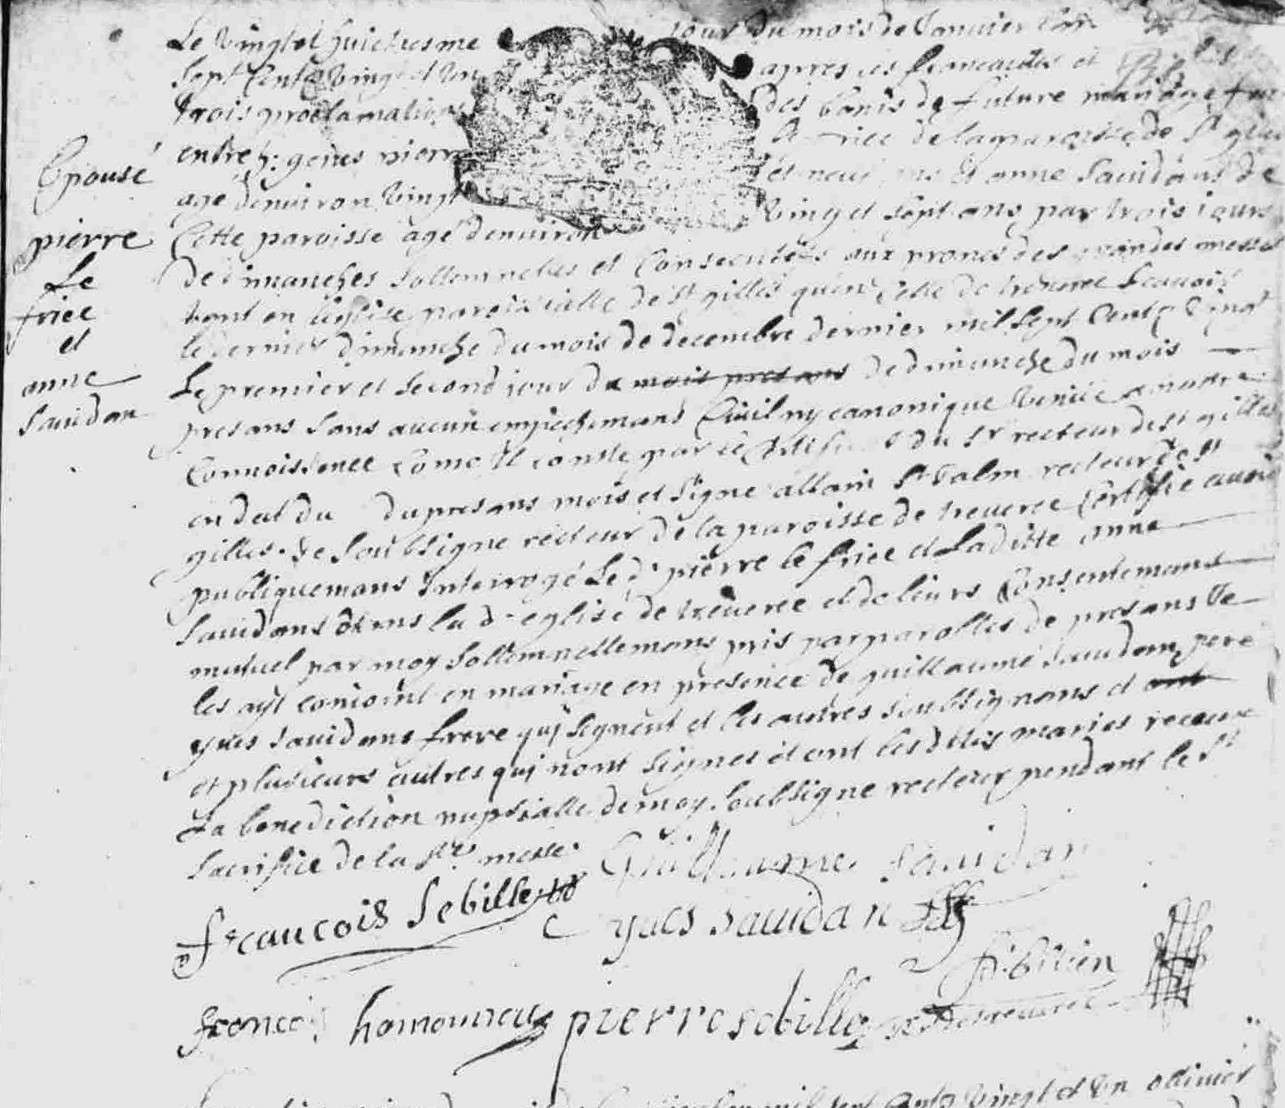 Epousé
pierre
Le
friec
et
anne
Sauidan
Le Vingt et huictiesme jour du mois de Januier Lan
Sept Cents Vingt et Un apres les fiancailles et
trois proclamations des banis de future mariage
entre h: gens pierre Le friec de la paroisse de St
agé denuiron Vingt et neuf ans et anne Sauidans de
Cette paroisse agé denuiron Vingt et Sept ans par trois iours
de dimanches Sollemnelles et Consecutifs aux prones des grandes messes
tant en leglise paroissialle de St gilles quen Celle de treuerec Scauoir
le dernier dimanche du mois de decembre dernier mil Sept Cents Vingt
Le premier et Second iour du mois presans de dimanche du mois
presans Sans aucun empeschemans Ciuil ny canonique Venüe a nostre
Connoissence Come Il conste par le Certificat du Sr recteur de St gilles
en dat du du presans mois et Signe allain recteur de St
gilles. Je Soubsigne recteur de la paroisse de treuerec Certifie auoir
publiquemans Interrogé Le dt pierre le friec et Laditte anne
Sauidans dans la de eglise de treuerec et de leurs Consentemans
mutuel par moy Sollemnellemans pris par parolles de presans Je
les ayt conioint en mariage en presence de guillaume Sauidan pere
yues Sauidans frere quj Signent et les autres Soubsignans et ont
et plusieurs autres quj nont Signes et ont les dittes maries receue
La benediction nuptialle de moy Soubsigne recteur pendant le St
Sacrifice de la Ste messe.
Guillaume Sauidan
francois Sebille
yues Sauidan
francois pierre sebille